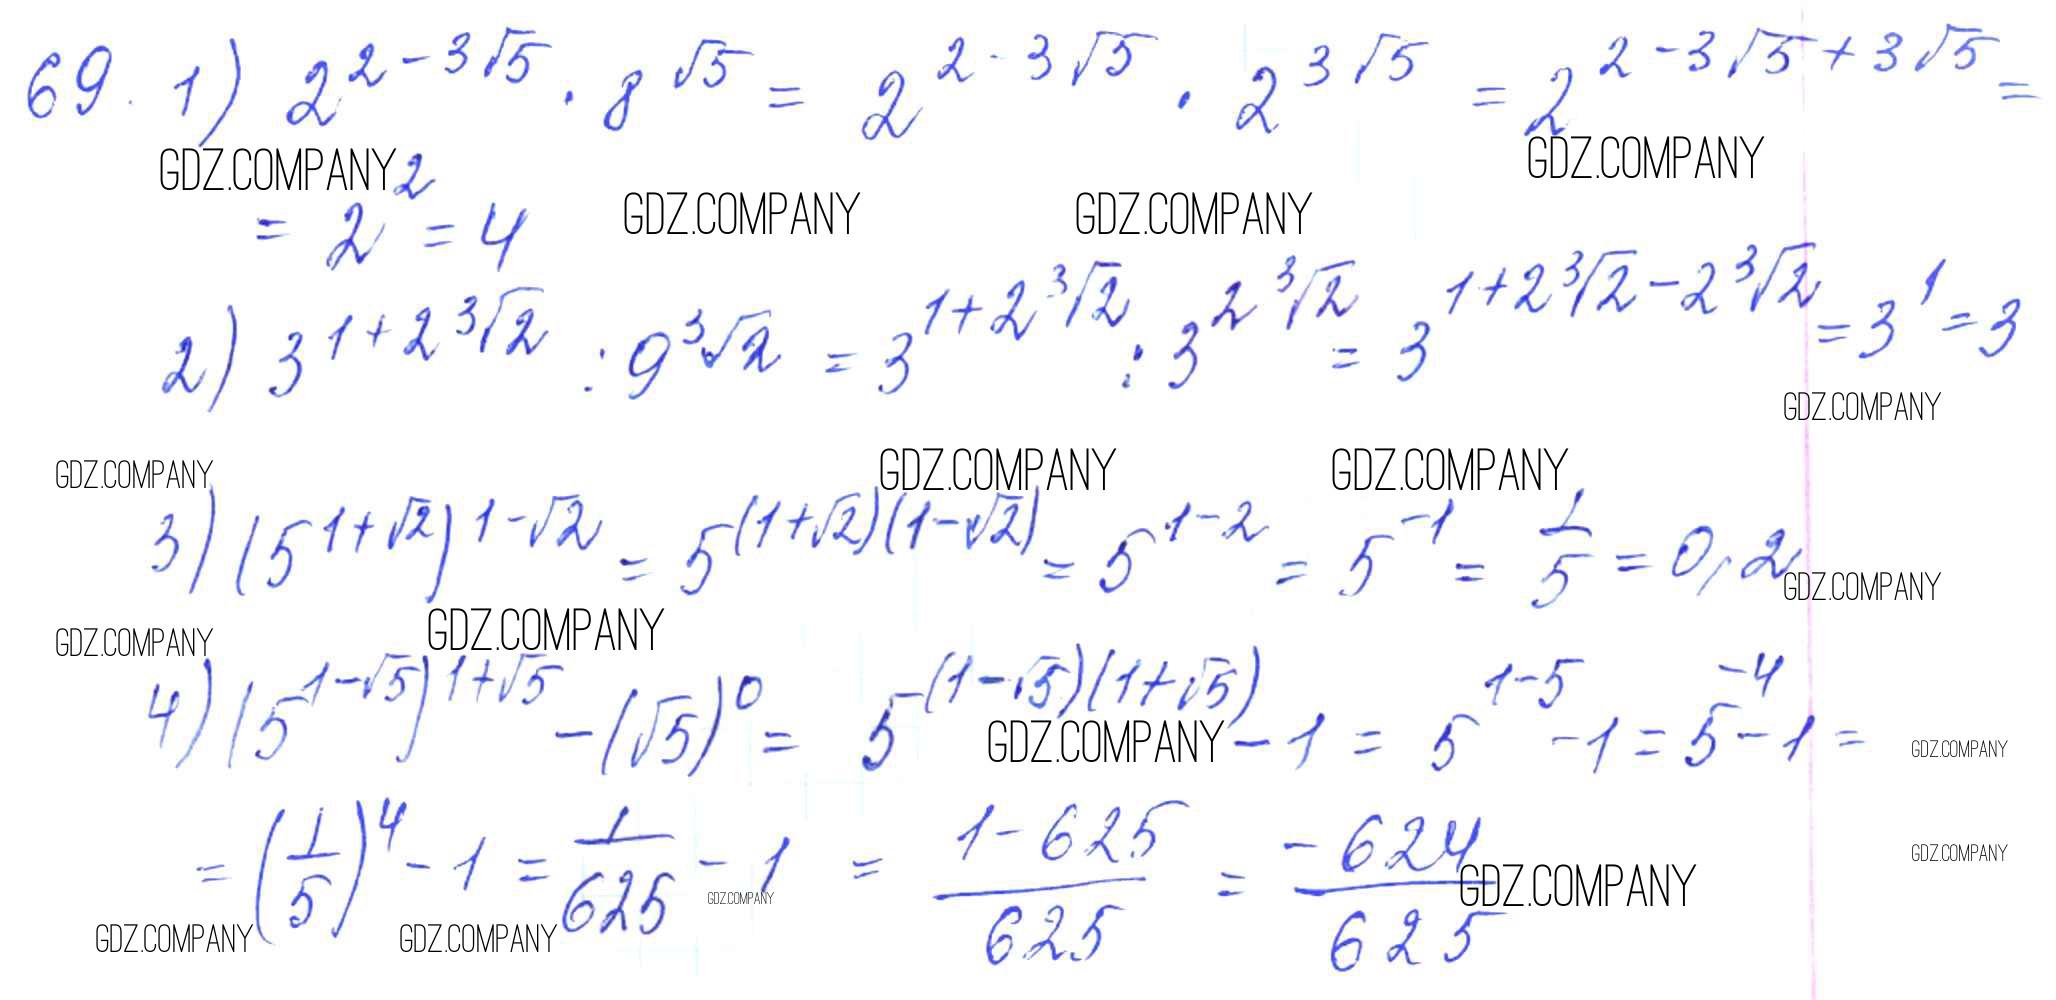 69. 1) 2^{2-3√5} · 8^{√5} = 2^{2-3√5} · 2^{3√5} = 2^{2-3√5+3√5} =
GDZ.COMPANY GDZ.COMPANY
= 2^{2} = 4 GDZ.COMPANY GDZ.COMPANY
2) 3^{1+2∛2} : 9^{∛2} = 3^{1+2∛2} : 3^{2∛2} = 3^{1+2∛2-2∛2} = 3^{1} = 3
GDZ.COMPANY
GDZ.COMPANY GDZ.COMPANY GDZ.COMPANY
3) (5^{1+√2})^{1-√2} = 5^{(1+√2)(1-√2)} = 5^{1-2} = 5^{-1} = 1/5 = 0,2
GDZ.COMPANY
GDZ.COMPANY GDZ.COMPANY
4) (5^{1-√5})^{1+√5} - (√5)^{0} = 5^{(1-√5)(1+√5)} - 1 = 5^{1-5} - 1 = 5^{-4} - 1 =
GDZ.COMPANY GDZ.COMPANY
= (1/5)^{4} - 1 = 1/625 - 1 = (1-625)/625 = -624/625
GDZ.COMPANY
GDZ.COMPANY GDZ.COMPANY
GDZ.COMPANY GDZ.COMPANY